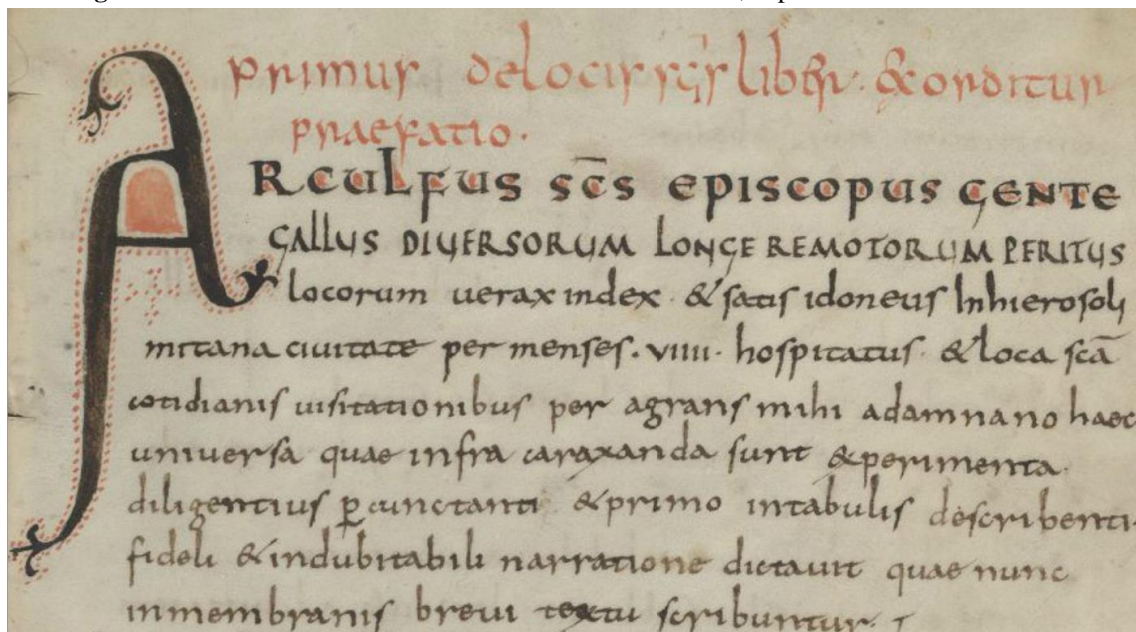 primus de locis scīs liber · & orditur
praefatio ·
ARCULFUS SC̄S EPISCOPUS GENTE
GALLUS DIVERSORUM LONGE REMOTORUM PERITUS
locorum uerax index · & satis idoneus Inhierosoly
mitana ciuitate per menses · viiii · hospitatus · & loca scā
cotidianis uisitationibus per agrans mihi adamnano haec
universa quae infra caraxanda sunt &perimenta
diligentius ꝑcunctanti · &primo intabulis describenti ·
fideli &indubitabili narratione dictauit quae nunc
inmembranis brevi textu scribuntur ·